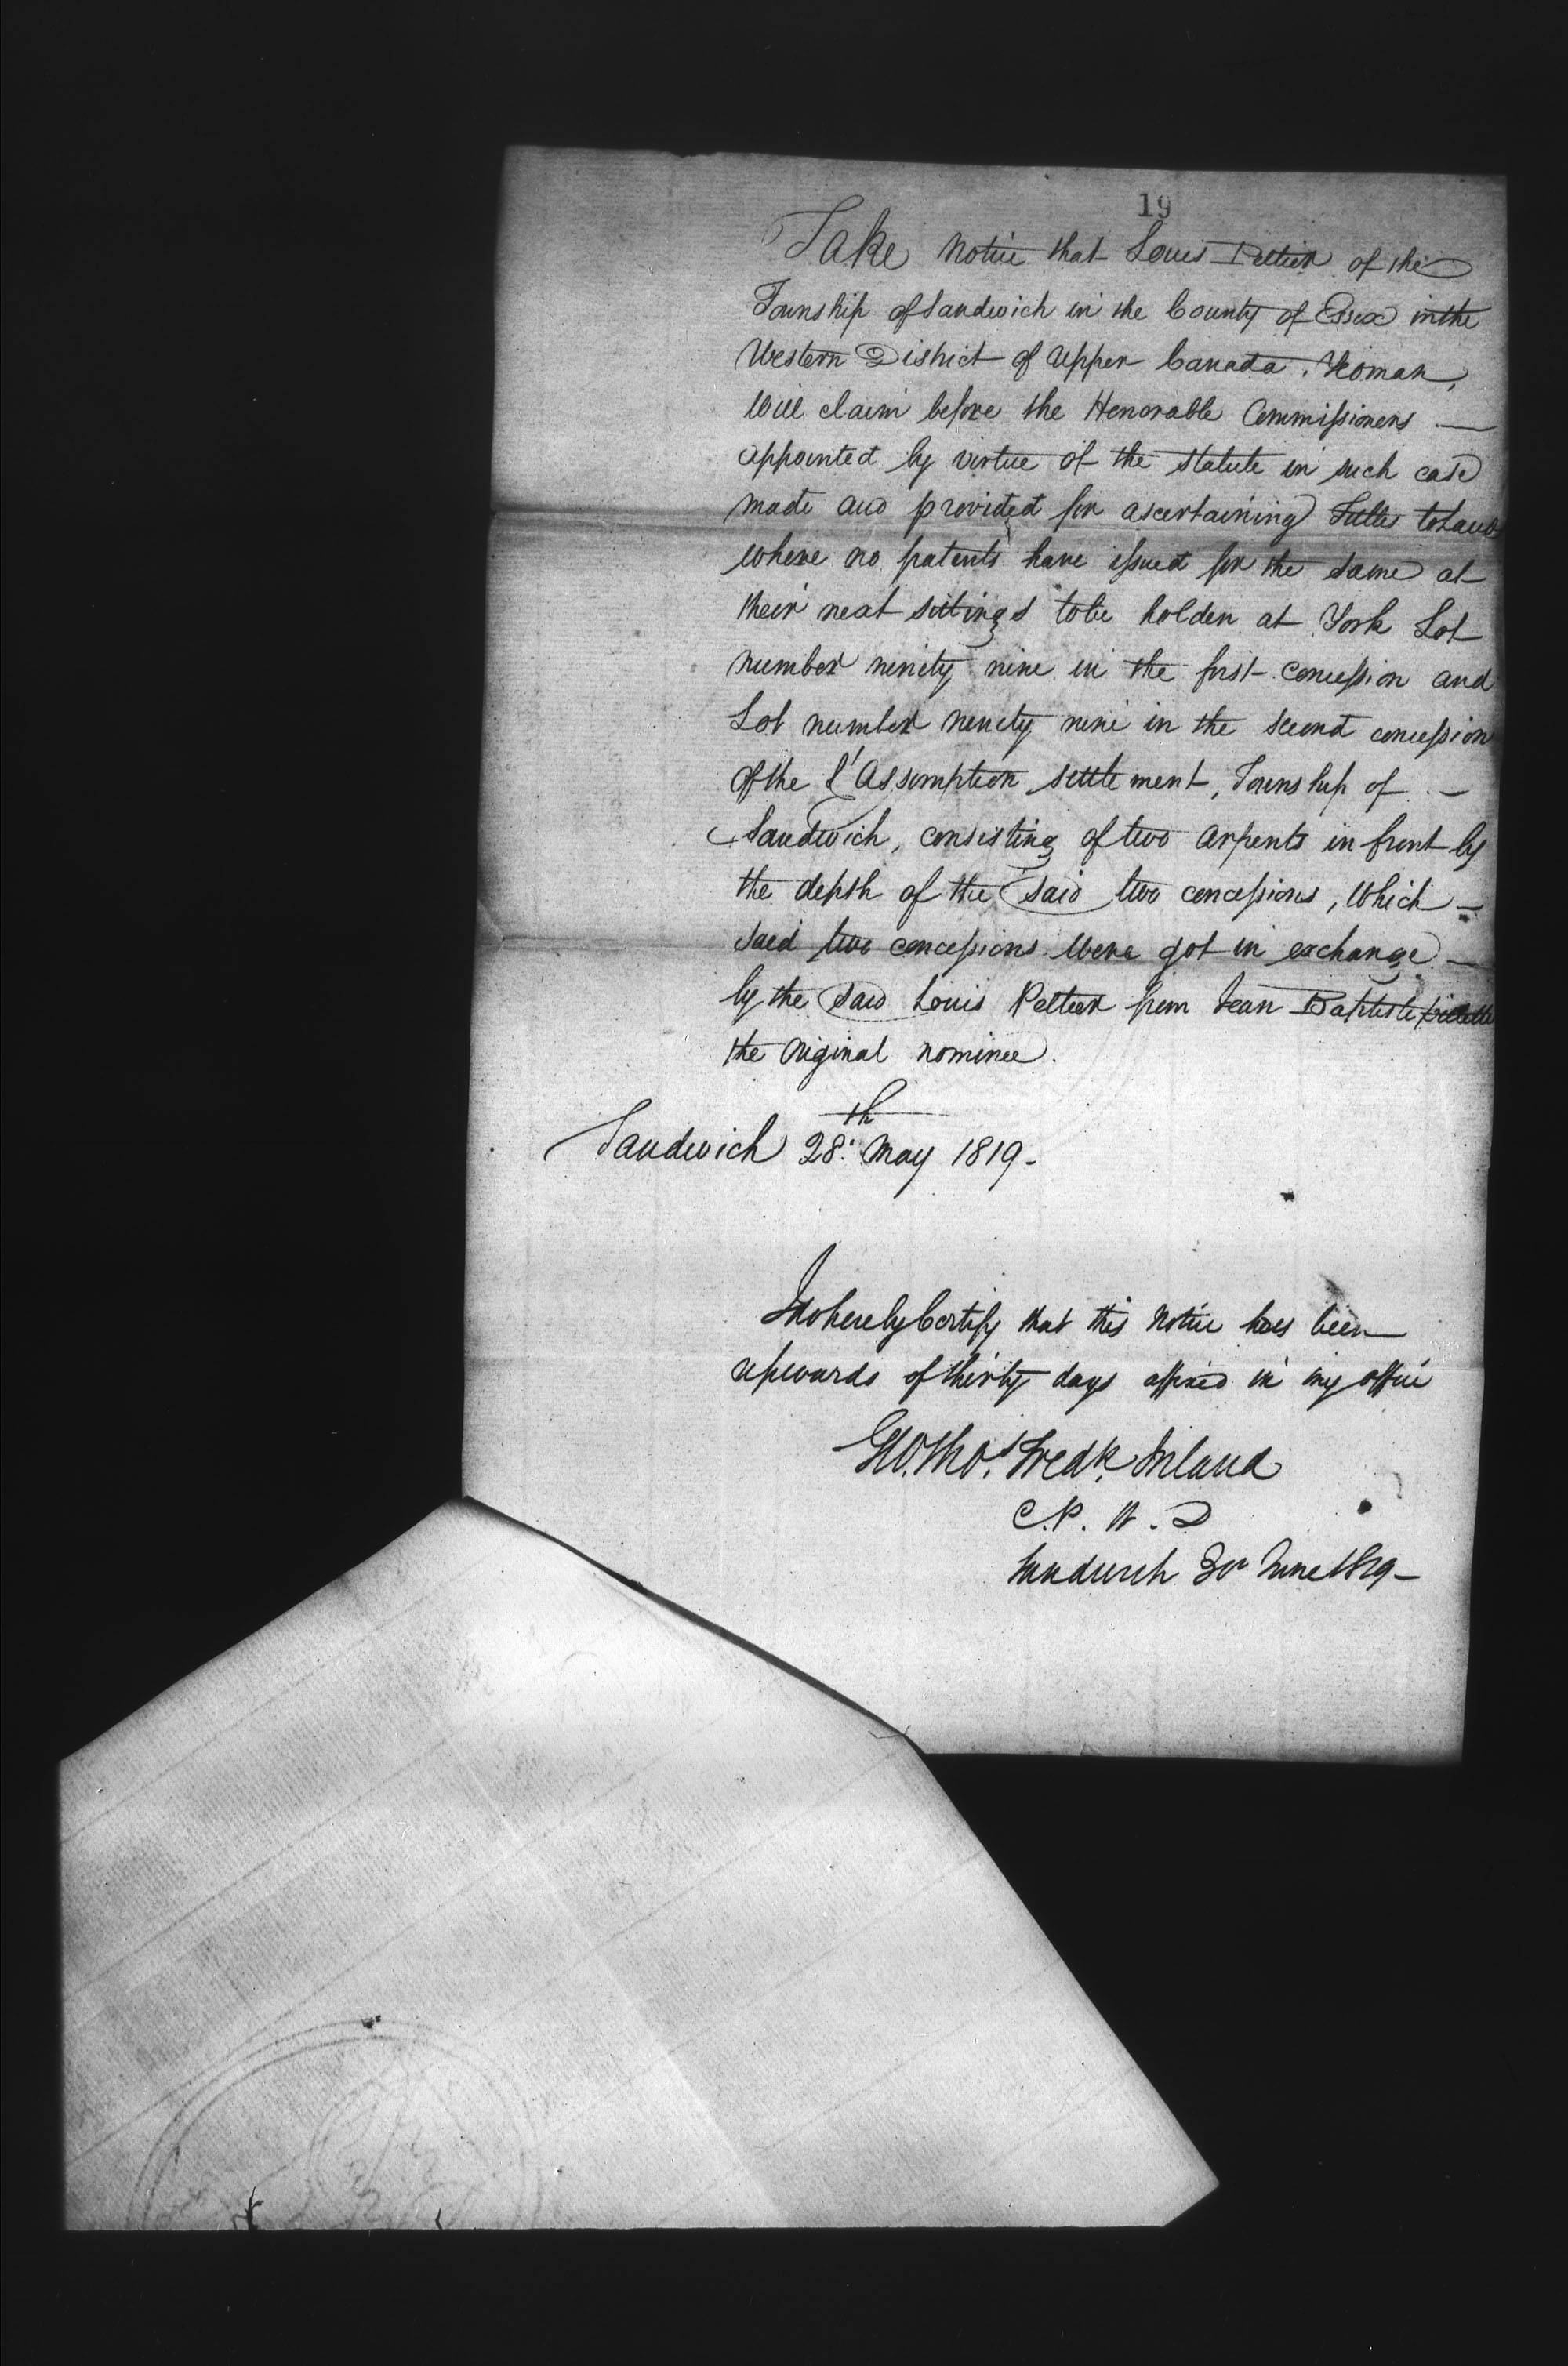 19
Take Notice that Louis Peltier of the
Township of Sandwich in the County of Essex in the
Western District of Upper Canada, Yeoman,
Will claim before the Honorable Commissioners
appointed by virtue of the statute in such case
made and provided for ascertaining Titles to Land
where no patents have issued for the same at
their next sittings to be holden at York Lot
number ninety nine in the first concession and
Lot number ninety nine in the second concession
of the l'Assomption settlement, Township of
Sandwich, consisting of two arpents in front by
the depth of the said two concessions, which
said two concessions were got in exchange
by the said Louis Peltier from Jean Baptiste
the original nominee.
Sandwich 28th May 1819.
I do hereby Certify that this Notice has been
upwards of thirty days affixed in my office
Geo. Thos. Fredk. Ireland
C.P. W. D
Sandwich 30 June 1819